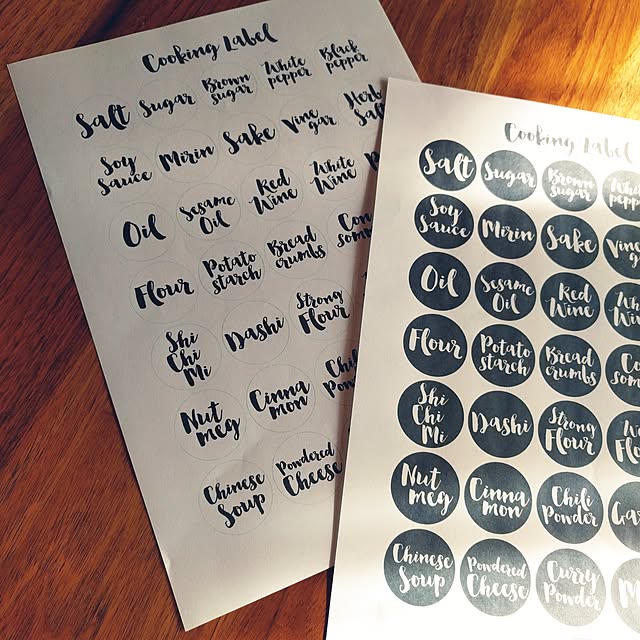 Cooking Label
Salt Sugar Brown sugar White pepper Black pepper
Soy Sauce Mirin Sake Vine gar Herb Salt
Oil Sesame Oil Red Wine White Wine
Flour Potato starch Bread crumbs
Shi Chi Mi Dashi Strong Flour
Nut meg Cinna mon
Chinese Soup Powdered Cheese
Cooking Label
Salt Sugar Brown sugar
Soy Sauce Mirin Sake Vine gar
Oil Sesame Oil Red Wine
Flour Potato starch Bread crumbs
Shi Chi Mi Dashi Strong Flour
Nut meg Cinna mon Chili Powder
Chinese Soup Powdered Cheese Curry Powder